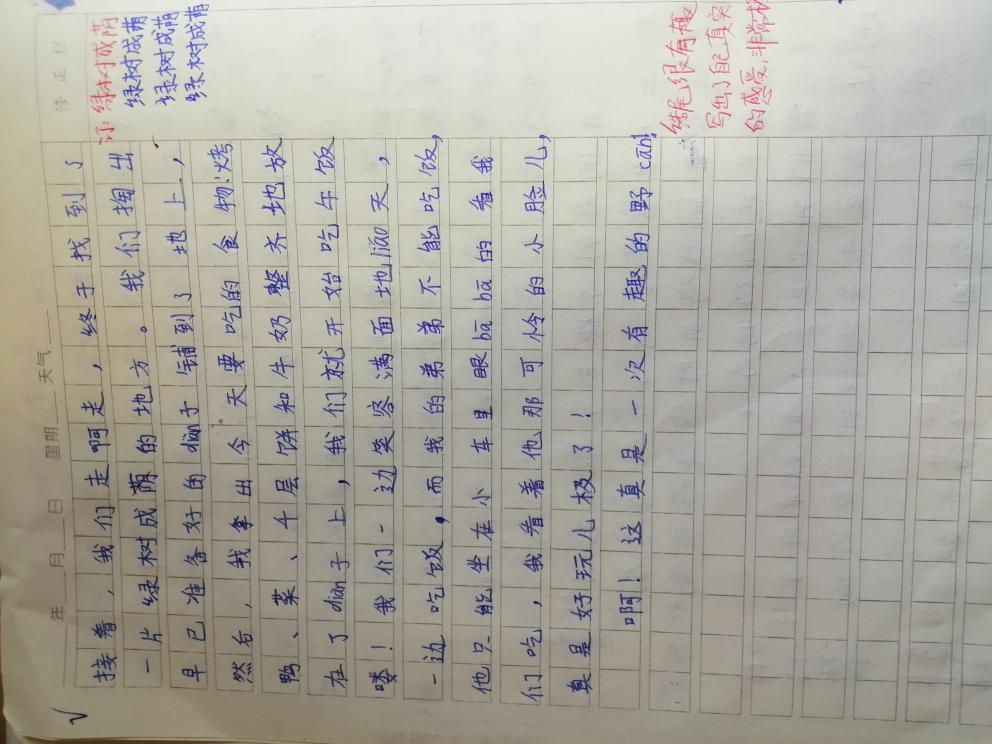 年 月 日 星期 天气
修正栏
接着，我们走啊走，终于找到了
一片绿树成荫的地方。我们掏出
早已准备好的diàn子铺到了地上，
然后，我拿出今天要吃的食物：烤
鸭、菜、千层饼和牛奶整齐地放
在了diàn子上，我们就开始吃午饭
喽！我们一边笑容满面地liáo天，
一边吃饭，而我的弟弟不能吃饭，
他只能坐在小车里眼bābā的看我
们吃，我看着他那可怜的小脸儿，
真是好玩儿极了！
啊！这真是一次有趣的野cān!
订：绿树成荫
绿树成荫
绿树成荫
绿树成荫
结尾很有趣
写出了自己真实
的感受，非常棒